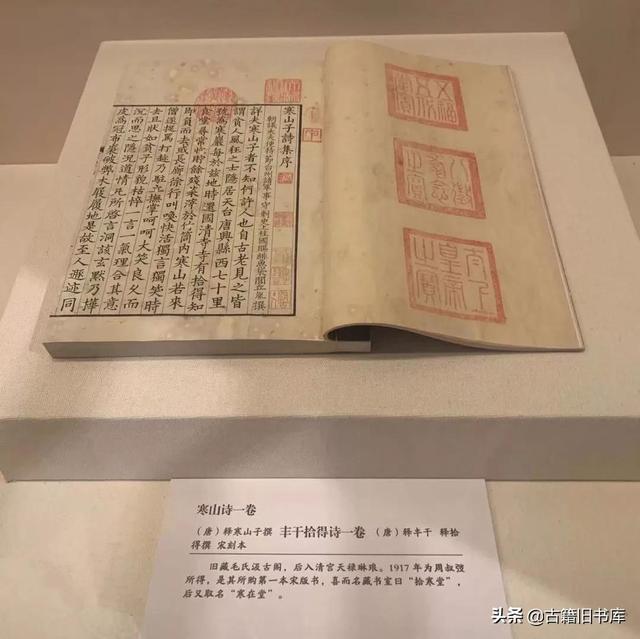 五福五代堂寶
八徵耄念之寶
太上皇帝之寶
寒山子詩集序
朝議大夫使持節台州諸軍事守刺史上柱國賜緋魚袋閭丘胤撰
詳夫寒山子者不知何許人也自古老見之皆
謂貧人風狂之士隱居天台唐興縣西七十里
號為寒巖每於茲地時還國清寺寺有拾得知
食堂尋常收貯餘殘菜滓於竹筒內寒山若來
即負而去或長廊徐行叫喚快活獨言獨笑時
僧遂捉罵打趁乃駐立撫掌呵呵大笑良久而
去且狀如貧子形貌枯悴一言一氣理合其意
沉而思之隱況道情凡所啓言洞該玄默乃樺
皮為冠布裘破弊木屐履地是故至人遯迹同
寒山诗一卷
（唐）释寒山子撰 丰干拾得诗一卷 （唐）释丰干 释拾
得撰 宋刻本
旧藏毛氏汲古阁，后入清宫天禄琳琅。1917 年为周叔弢
所得，是其所购第一本宋版书，喜而名藏书室曰“拾寒堂”，
后又取名“寒在堂”。
头条 @古籍旧书库